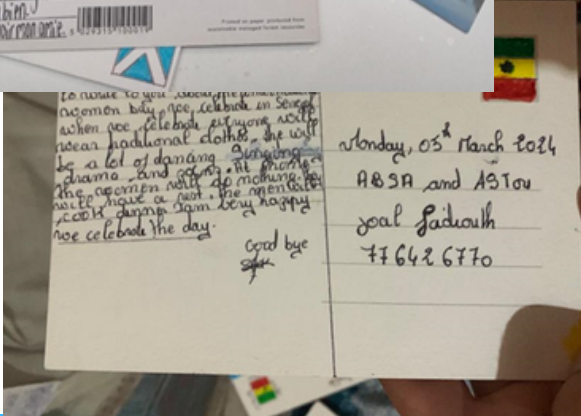 bien.
oir mon amie.
5 029315 100019
Printed on paper produced from
sustainable managed forest resources
to write to you, about the
women day, we celebrate in Senegal
when we celebrate everyone will
wear traditional clothes, the will
be a lot of dancing Singing
drama and going. At home
the women will do nothing. they
will have a rest. the men will
cook dinner Iam very happy
we celebrate the day.
Good bye
Monday, 03th March 2024
ABSA and ASTOU
Joal Fadiouth
77 642 6770